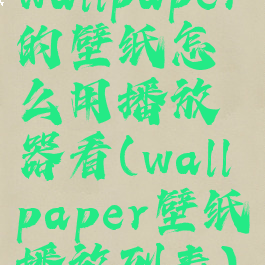 wallpaper
的壁纸怎
么用播放
器看(wall
paper壁纸
播放列表)